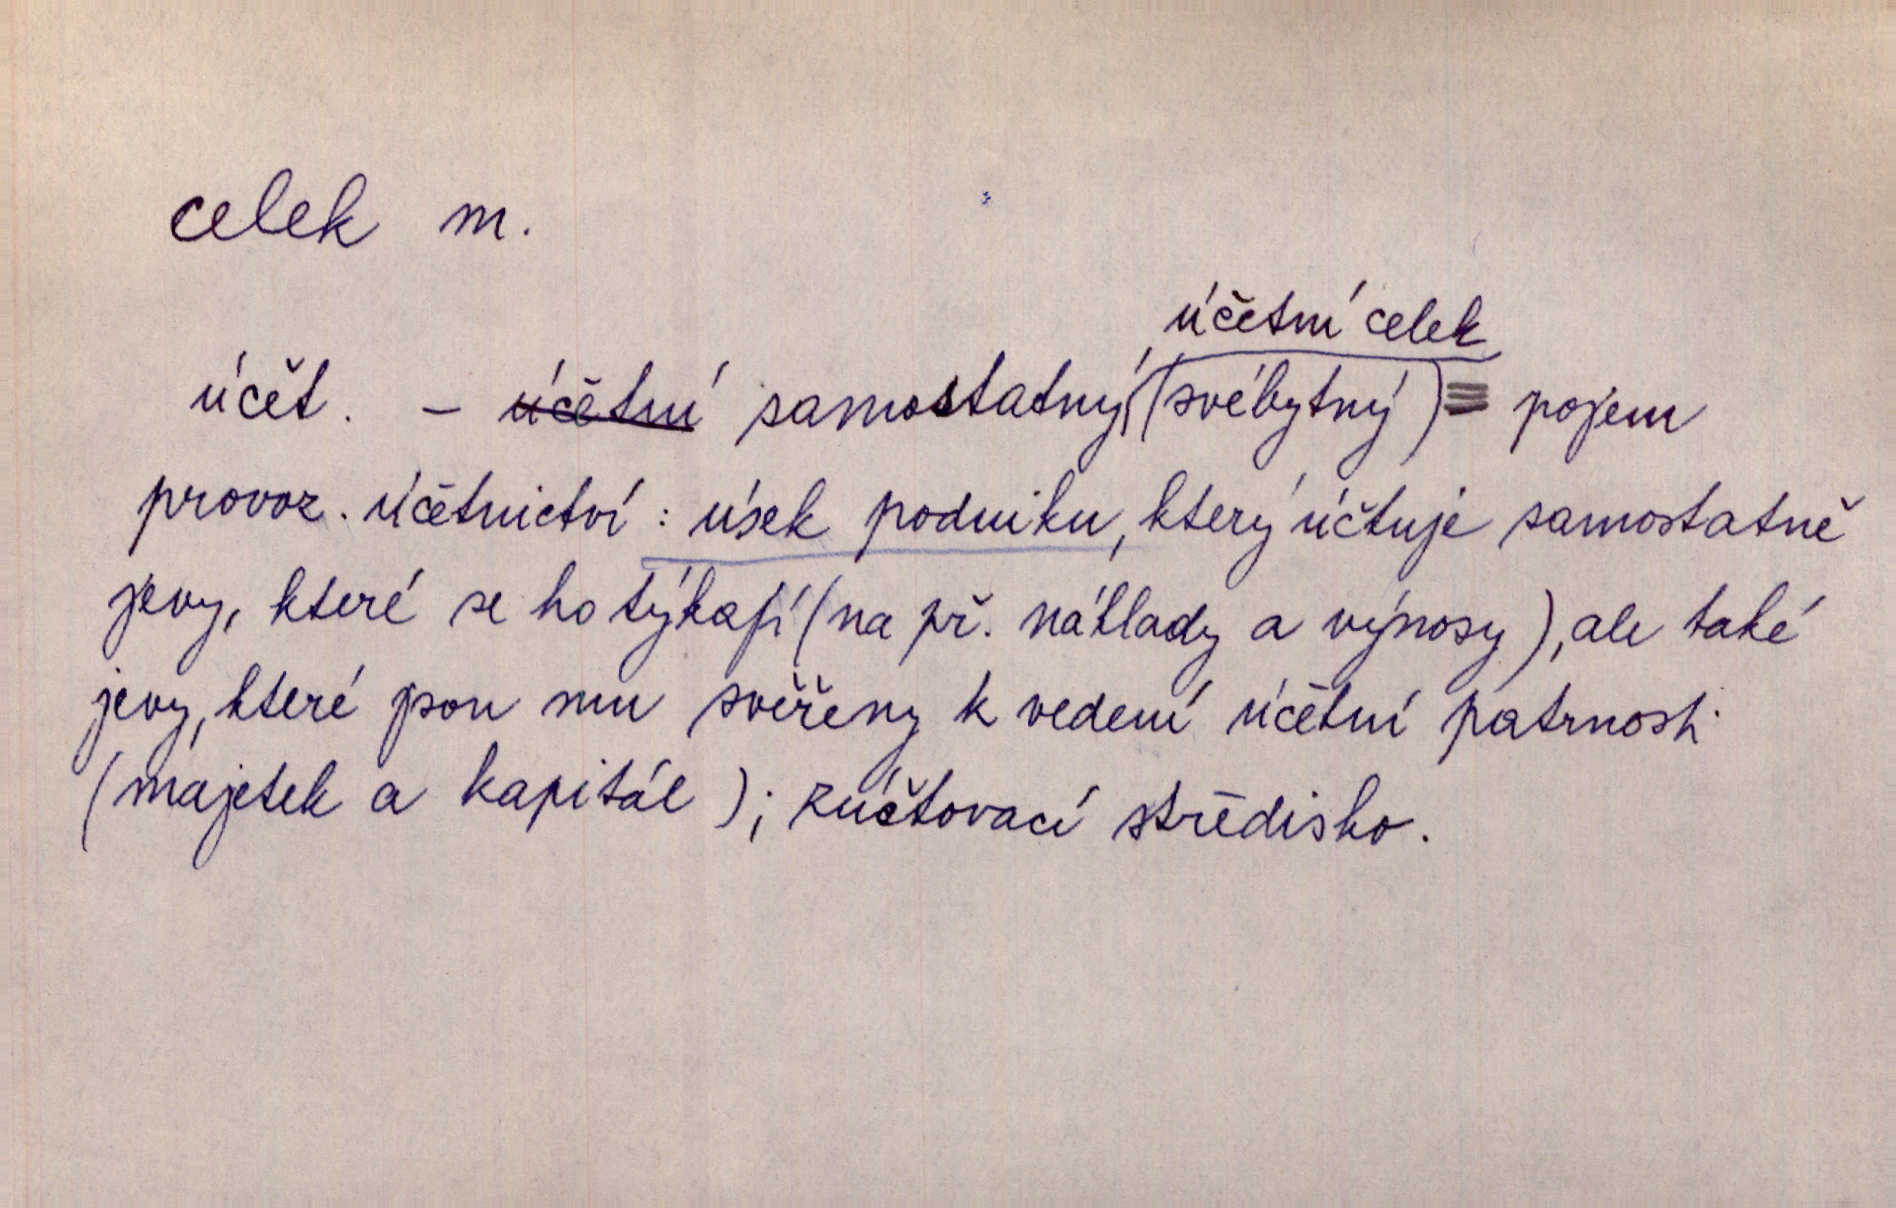 celek m.
účetní celek
účet. – účetní samostatný (svébytný) = pojem
provoz. účetnictví : úsek podniku, který účtuje samostatně
jevy, které se ho týkají (na př. náklady a výnosy), ale také
jevy, které jsou mu svěřeny k vedení účetní patrnosti
(majetek a kapitál); zúčtovací středisko.